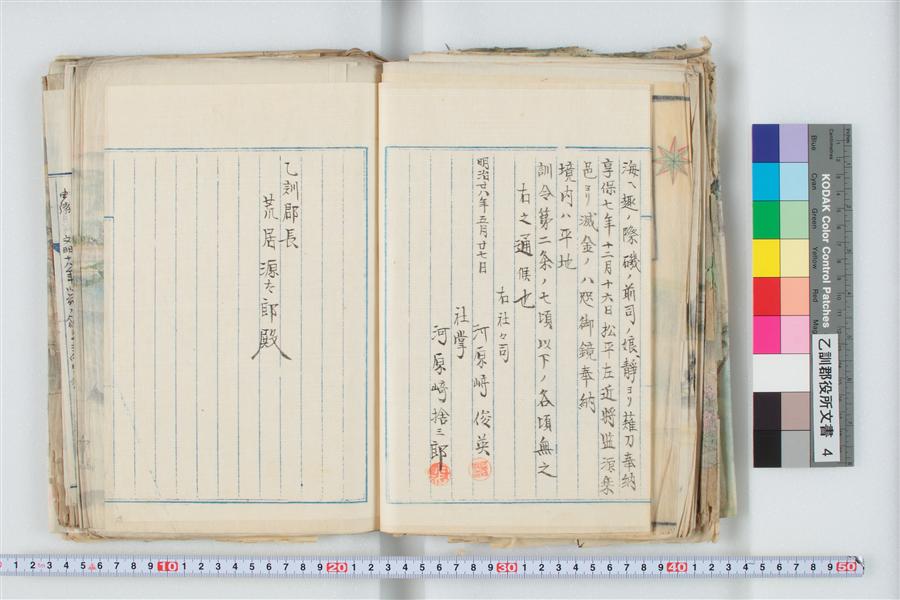 海ヘ趣ノ際磯ノ前司ノ娘静ヨリ薙刀奉納
享保七年十二月十六日松平左近将监源乗
邑ヨリ滅金ノ八咫御鏡奉納
境内ハ平地
訓令第二条ノ七頃以下ノ各頃無之
右之通候也
明治廿六年五月廿七日
右社々司
河原﨑俊英
社掌
河原﨑捨三郎
乙訓郡長
荒居源太郎殿
KODAK Color Control Patches
Blue Cyan Green Yellow Red
Centimetres
乙訓郡役所文書 4
1 2 3 4 5 6 7 8 9 10 1 2 3 4 5 6 7 8 9 20 1 2 3 4 5 6 7 8 9 30 1 2 3 4 5 6 7 8 9 40 1 2 3 4 5 6 7 8 9 50